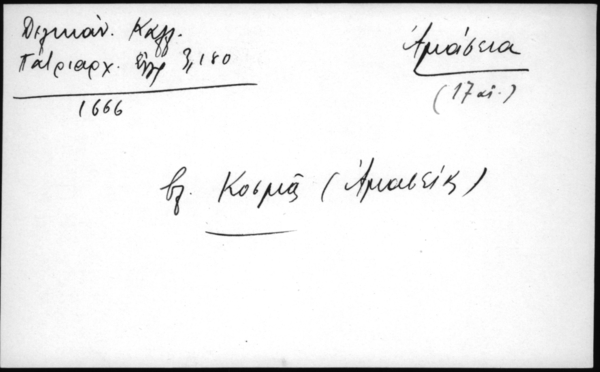 Δελικάν. Καλλ.
Πατριαρχ. Εγγρ 3, 180
1666
Ἀμάσεια
(17 αἰ.)
βλ. Κοσμᾶς (Ἀμασείας)